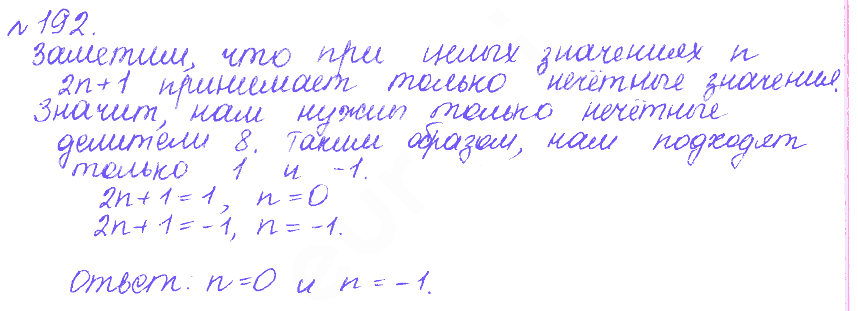 №192.
Заметим, что при целых значениях n
2n+1 принимает только нечётные значения.
Значит, нам нужны только нечётные
делители 8. Таким образом, нам подходят
только 1 и -1.
2n+1=1, n=0
2n+1=-1, n=-1.
Ответ: n=0 и n=-1.